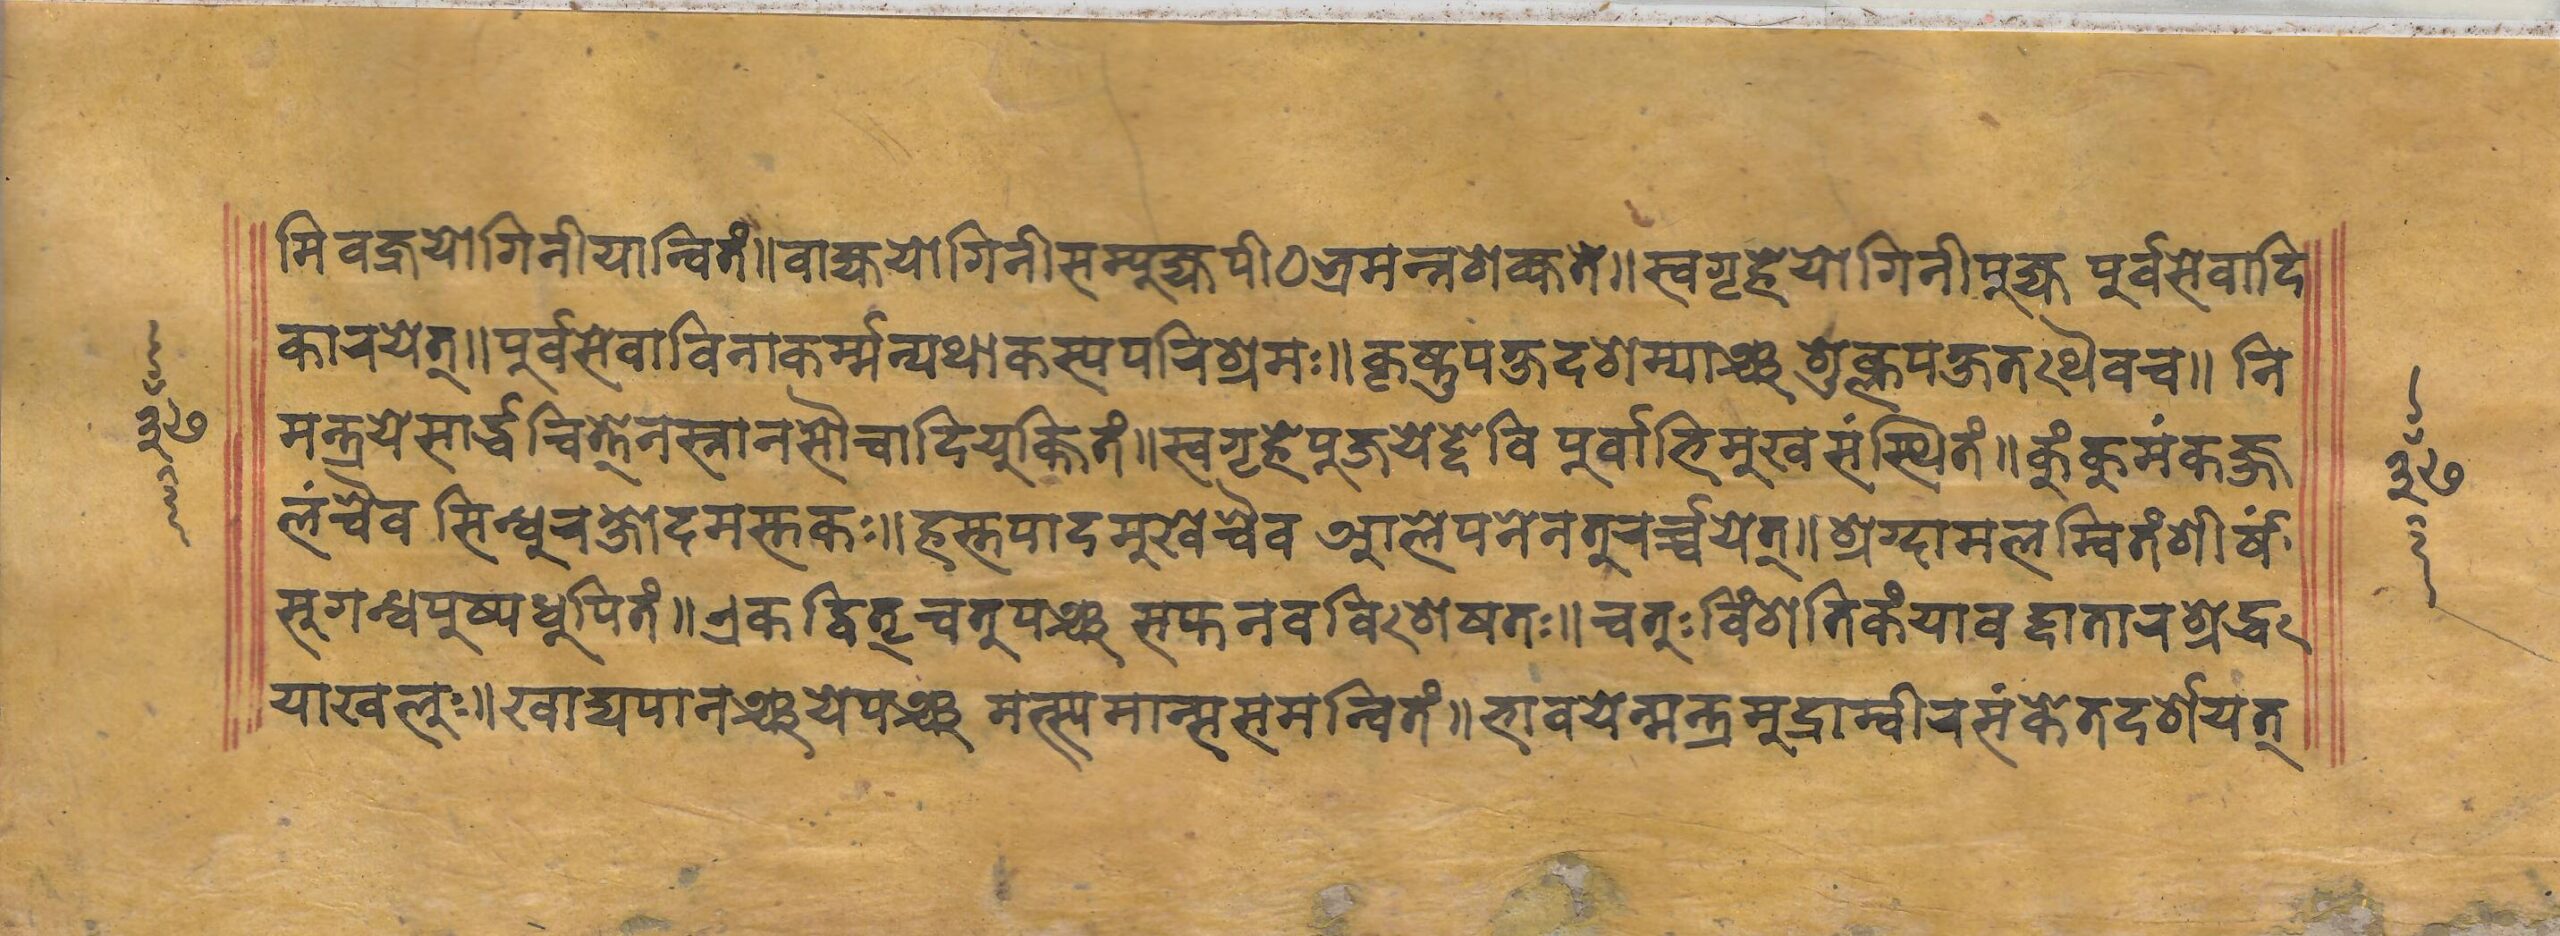 मि वज्रयोगिनीयान्वितं॥वाह्ययोगिनीसम्पूज्यपीठभ्रमन्नशक्यते॥स्वगृहेयोगिनीपूज्य पूर्वसेवादि
कारयेत्॥पूर्वसेवाविनाकर्म्मन्यथाकस्यपरिश्रमः॥कृष्णपक्षदशम्याञ्च शुक्लपक्षतथैवच॥ नि
मन्त्रयेसार्द्धचित्तेनस्नानसौचादियुक्तितं॥स्वगृहेपूजयेद्देवि पूर्वाभिमुखसंस्थितं॥कुंकुमंकज्ज
लंचैव सिन्धुरक्षोदमस्तकः॥हस्तपादमुखेचैव आलेपनेनतुरर्च्चयेत्॥श्रग्दामलम्वितंशीर्षं
सुगन्धपुष्पधुपितं॥एकद्वितृचतुपञ्च सप्तनवविशेषतः॥चतुःविंशतिकंयावद्दातारश्रद्ध
याखलुः॥खाद्यपानञ्चयेपञ्च मत्स्यमान्ससमन्वितं॥भावयेन्मन्त्रमुद्राम्वीरसंकेतदर्शयेत्
३७
३७